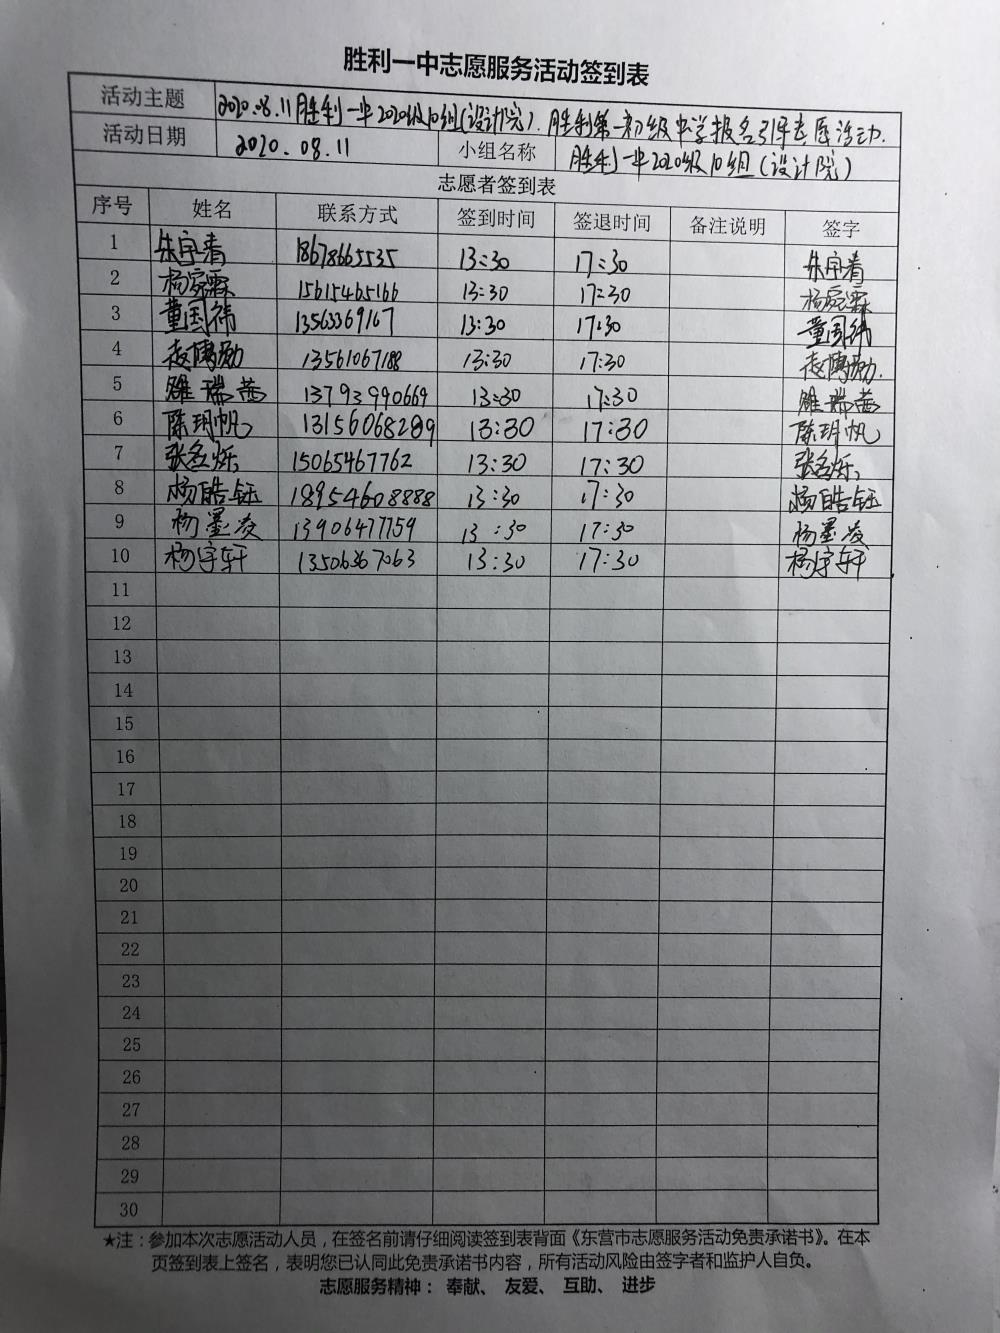 胜利一中志愿服务活动签到表
活动主题 2020.08.11胜利一中2020级10组(设计院).胜利第一初级中学报名引导志愿活动.
活动日期 2020.08.11 小组名称 胜利一中2020级10组(设计院)
志愿者签到表
序号 姓名 联系方式 签到时间 签退时间 备注说明 签字
1 朱宇青 18678665535 13:30 17:30 朱宇青
2 杨宛霖 15615465166 13:30 17:30 杨宛霖
3 董国祎 13563369167 13:30 17:30 董国祎
4 赵博勋 13561067188 13:30 17:30 赵博勋.
5 雎瑞茜 13793990669 13:30 17:30 雎瑞茜
6 陈玥帆 13156068289 13:30 17:30 陈玥帆
7 张名烁 15065467762 13:30 17:30 张名烁
8 杨皓钰 18954608888 13:30 17:30 杨皓钰
9 杨墨凌 13906477759 13:30 17:30 杨墨凌
10 杨宇轩 13506367063 13:30 17:30 杨宇轩
11
12
13
14
15
16
17
18
19
20
21
22
23
24
25
26
27
28
29
30
★注：参加本次志愿活动人员，在签名前请仔细阅读签到表背面《东营市志愿服务活动免责承诺书》。在本
页签到表上签名，表明您已认同此免责承诺书内容，所有活动风险由签字者和监护人自负。
志愿服务精神： 奉献、 友爱、 互助、 进步